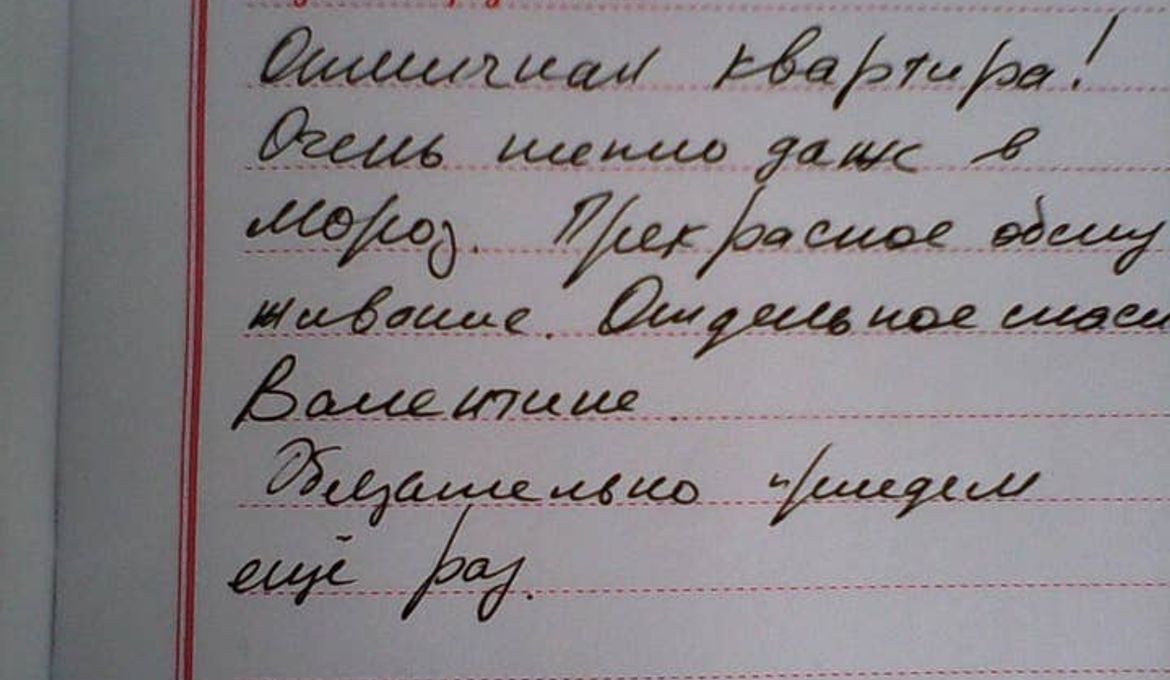 Отличная квартира!
Очень тепло даже в
мороз. Прекрасное обслу
живание. Отдельное спаси
Валентине.
Обязательно приедем
ещё раз.